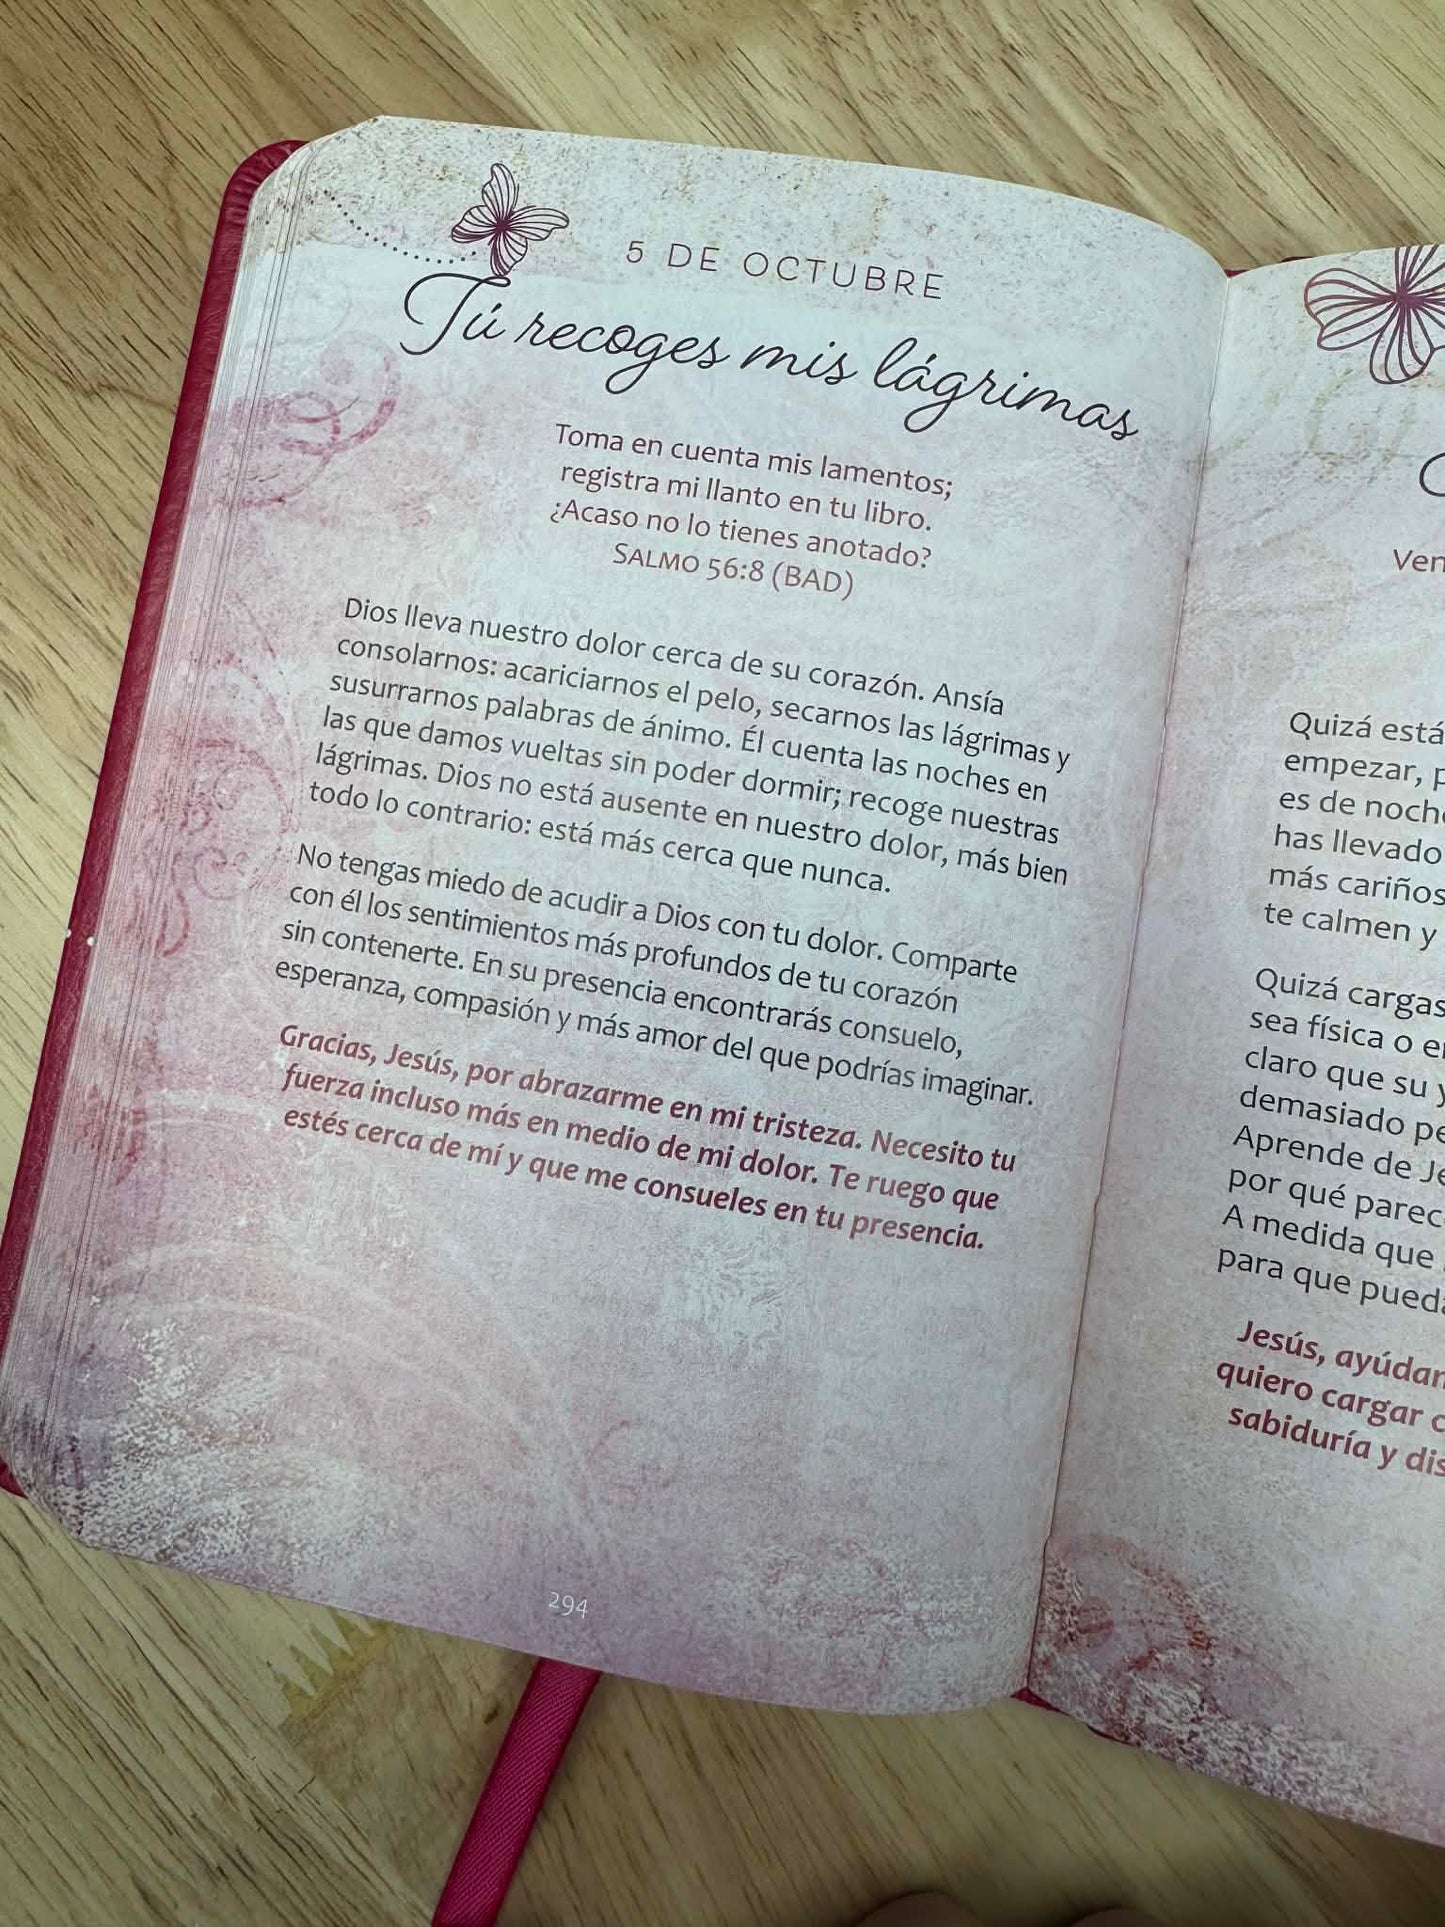 5 DE OCTUBRE
Tú recoges mis lágrimas
Toma en cuenta mis lamentos;
registra mi llanto en tu libro.
¿Acaso no lo tienes anotado?
SALMO 56:8 (BAD)
Dios lleva nuestro dolor cerca de su corazón. Ansía
consolarnos: acariciarnos el pelo, secarnos las lágrimas y
susurrarnos palabras de ánimo. Él cuenta las noches en
las que damos vueltas sin poder dormir; recoge nuestras
lágrimas. Dios no está ausente en nuestro dolor, más bien
todo lo contrario: está más cerca que nunca.
No tengas miedo de acudir a Dios con tu dolor. Comparte
con él los sentimientos más profundos de tu corazón
sin contenerte. En su presencia encontrarás consuelo,
esperanza, compasión y más amor del que podrías imaginar.
Gracias, Jesús, por abrazarme en mi tristeza. Necesito tu
fuerza incluso más en medio de mi dolor. Te ruego que
estés cerca de mí y que me consueles en tu presencia.
294
Quizá está
empezar,
es de
has llevado
más
te calmen y
Quizá cargas
sea física o
claro que su
demasiado
Aprende de
por qué
A medida que
para que
Jesús,
quiero cargar
sabiduría y